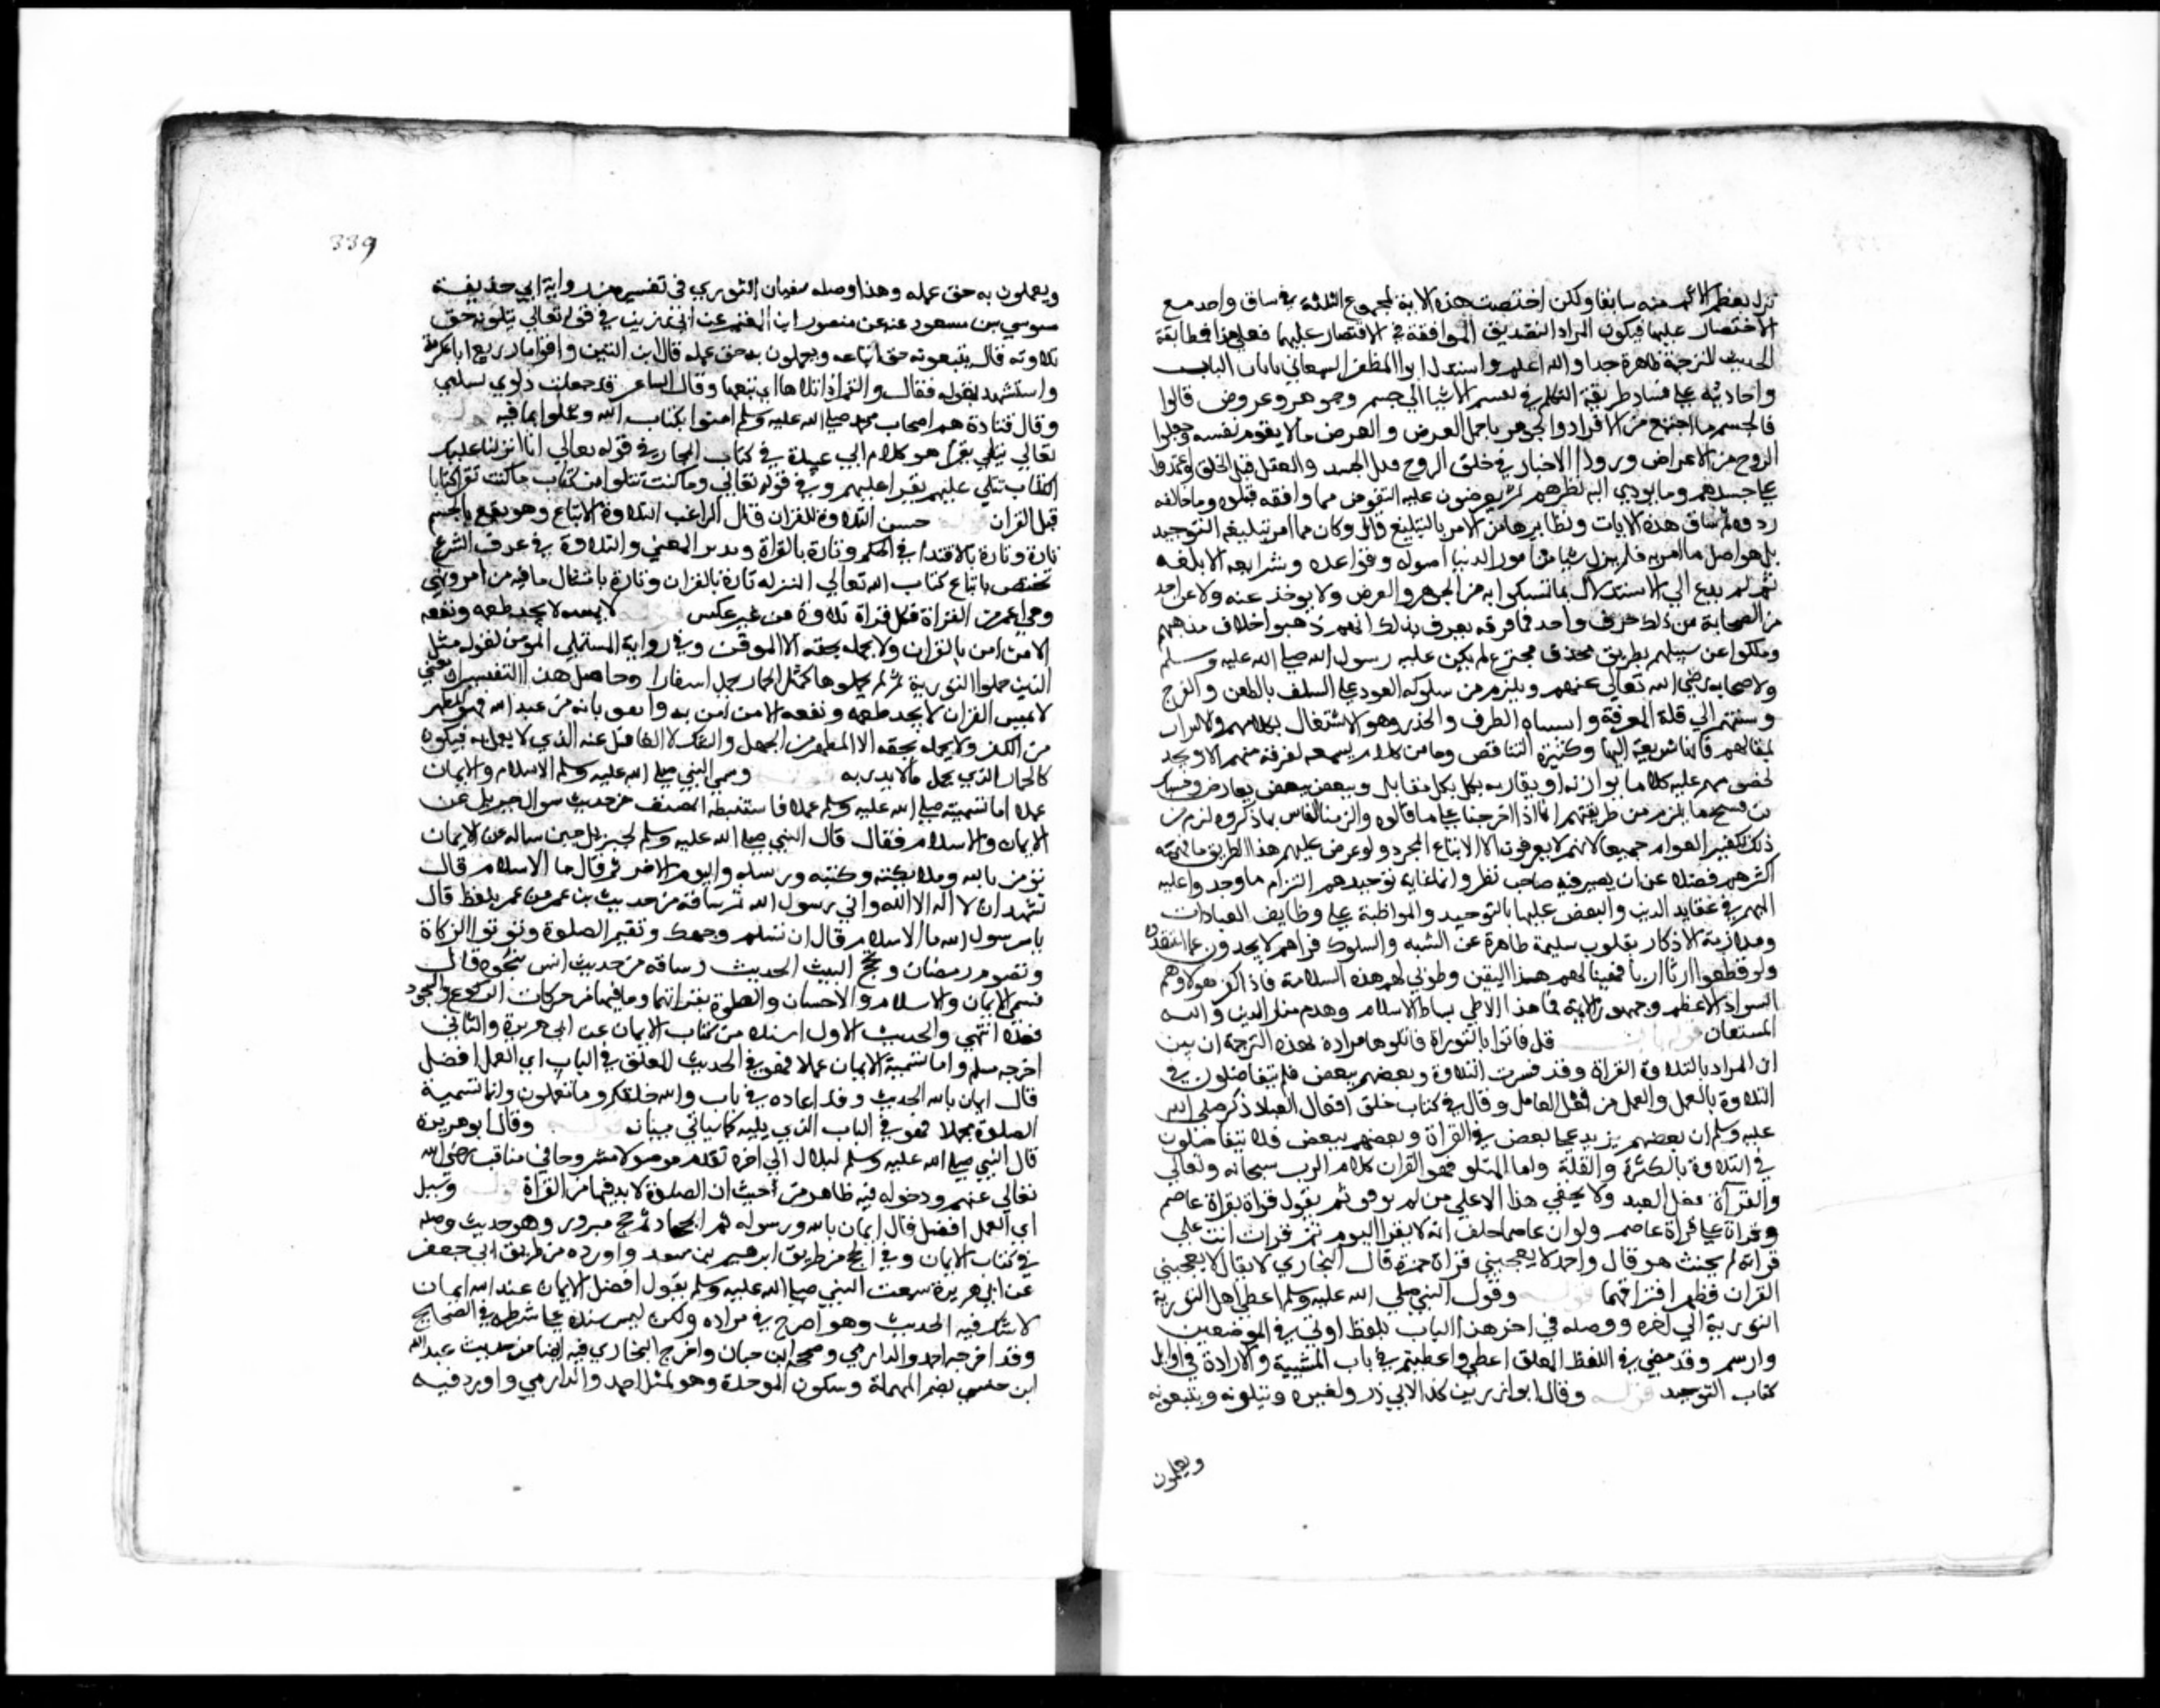 نزل بعظم الاثم منه سابقا ولكن اختصت هذه الاية لمجموع الثلثة في سياق واحد مع
الاقتصار عليها فيكون المراد التصديق الموافقة في الاقتصار عليها فعلى هذا فمطابقة
الحديث للترجمة ظاهرة جدا والله اعلم واستدل ابو المظفر السمعاني بايات الباب
واحاديثه على فساد طريقة المتكلمين في تقسيم الاشيا الى جسم وجوهر وعرض قالوا
فالجسم ما اجتمع من الافتراق والجوهر ما حمل العرض والعرض ما لا يقوم بنفسه وجعلوا
الروح من الاعراض وردوا الاخبار في خلق الروح قبل الجسد والعقل قبل الخلق واعتمدوا
على حدسهم وما يودي اليه نظرهم ثم يعرضون عليه النصوص فما وافقه قبلوه وما خالفه
ردوه ثم ساق هذه الايات ونظايرها من الامر بالتبليغ قال وكان مما امر بتبليغه التوحيد
بل هو اصل ما امر به فلم يترك شيا من امور الدنيا اصوله وقواعده وشرايعه الا بلغه
ثم لم يدع الى الاستدلال بما تمسكوا به من الجوهر والعرض ولا يوخذ عنه ولا عن احد
من الصحابة من ذلك حرف واحد فما فوقه فعرف بذلك انهم ذهبوا خلاف مذهبهم
وسلكوا عن سبيلهم بطريق محدث مخترع لم يكن عليه رسول الله صلى الله عليه وسلم
ولا صحابه رضي الله تعالى عنهم ويلزم من سلوكه العود على السلف بالطعن والقدح
ونسبتهم الى قلة المعرفة واشتباه الطرق والحذر وهو الاشتغال بكلامهم والاكتراث
بمقالتهم فانها سريعة التهافت وكثيرة التناقض وما من كلام يسمعه لفرقة منهم الا ويجد
لخصومهم عليه كلاما يوازنه او يقاربه فكل بكل مقابل وبعض ببعض معارض وحسبك
من قبيح ما يلزم من طريقتهم انا اذا جرينا على ما قالوه والزمنا الناس بما ذكروه لزم من
ذلك تكفير العوام جميعا لانهم لا يعرفون الا الاتباع المجرد ولو عرض عليهم هذا الطريق ما فهمه
اكثرهم فضلا عن ان يصير فيه صاحب نظر وانما غاية توحيدهم التزام ما وجدوا عليه
ايمتهم في عقايد الدين والعض عليها بالنواجذ والمواظبة على وظايف العبادات
وملازمة الاذكار بقلوب سليمة طاهرة عن الشبه والشكوك فتراهم لا يحيدون عما اعتقدوه
ولو قطعوا اربا اربا فهنيا لهم هذا اليقين وطوبى لهم هذه السلامة فاذا كفر هولاء وهم
السواد الاعظم وجمهور الامة فما هذا الا طي بساط الاسلام وهدم منار الدين والله
المستعان قوله باب قل فاتوا بالتوراة فاتلوها مراده بهذه الترجمة ان يبين
ان المراد بالتلاوة القراة وقد فسرت التلاوة وبعضهم ببعض فلم يتفاضلون في
التلاوة بالعمل والعمل من فعل العامل وقال في كتاب خلق افعال العباد ذكر صلى الله
عليه وسلم ان بعضهم يزيد على بعض في القراة وبعضهم ببعض فلا يتفاضلون
في التلاوة بالكثرة والقلة واما المتلو فهو القران كلام الرب سبحانه وتعالى
والقراة فعل العبد ولا يخفى هذا الا على من لم يوفق ثم يقول قراة بقراة عاصم
وقراة على قراة عاصم ولو ان عاصما حلف ان لا يقرا اليوم ثم قرات انت على
قراته لم يحنث هو قال واحمد لا يعجبني قراة حمزة قال البخاري لا يقال لا يعجبني
القران فظهر افتراقهما قوله وقول النبي صلى الله عليه وسلم اعطي اهل التورية
التورية الى اخره ووصله في اخر هذا الباب بلفظ اوتي في الموضعين
وارسم وقد مضى في اللفظ المعلق اعطي واعطيتم في باب المشيية والارادة في اوايل
كتاب التوحيد قوله وقال ابو رزين كذا لابي ذر ولغيره ويتلونه ويتبعونه
ويعملون
339
ويعملون به حق عمله وهذا وصله سفيان الثوري في تفسيره من رواية ابي حذيفة
موسى بن مسعود عنه عن منصور ابن المعتمر عن ابي رزين في قوله تعالى يتلونه حق
تلاوته قال يتبعونه حق اتباعه ويعملون به حق عمله قال ابن التين وافق ابا رزين عكرمة
واستشهد بقوله فقال والقمر اذا تلاها اي تبعها وقال الشاعر قد جعلت دلوي تستتليني
وقال قتادة هم اصحاب محمد صلى الله عليه وسلم امنوا بكتاب الله وعملوا بما فيه قوله
تعالى يتلى يقرأ هو كلام ابي عبيدة في كتاب المجاز في قوله تعالى انا انزلنا عليك
الكتاب يتلى عليهم يقرا عليهم وفي قوله تعالى وما كنت تتلو من كتاب ما كنت تقرا كتابا
قبل القران قوله حسن التلاوة للقران قال الراغب التلاوة الاتباع وهو يقع بالجسم
تارة وتارة بالاقتدا في الحكم وتارة بالقراة وتدبر المعنى والتلاوة في عرف الشرع
تختص باتباع كتاب الله تعالى المنزله تارة بالقران وتارة بامتثال ما فيه من امر ونهي
وهي اعم من القراة فكل قراة تلاوة من غير عكس قوله لا يمسه لا يجد طعمه ونفعه
الا من امن بالقران ولا يحمله بحقه الا الموقن وفي رواية المستملي المومن لقوله مثل
الذين حملوا التورية ثم لم يحملوها كمثل الحمار يحمل اسفارا وحاصل هذا التفسير ان معنى
لا يمس القران لا يجد طعمه ونفعه الا من امن به وايقن بانه من عند الله فهو المطهر
من الكفر ولا يحمله بحقه الا المطهر من الجهل والشك لا الغافل عنه الذي لا يعمل به فيكون
كالحمار الذي يحمل ما لا يدريه قوله وسمى النبي صلى الله عليه وسلم الاسلام والايمان
عملا اما تسميته صلى الله عليه وسلم عملا فاستنبطه المصنف من حديث سوال جبريل عن
الايمان والاسلام فقال قال النبي صلى الله عليه وسلم لجبريل حين ساله عن الايمان
تومن بالله وملايكته وكتبه ورسله واليوم الاخر ثم قال ما الاسلام قال
تشهد ان لا اله الا الله واني رسول الله ثم ساقه من حديث بن عمر عن عمر بلفظ قال
يا رسول الله ما الاسلام قال ان تسلم وجهك وتقيم الصلوة وتوتوا الزكاة
وتصوم رمضان وتحج البيت الحديث وساقه من حديث انس بنحوه قال
فسمى الايمان والاسلام والاحسان والصلوة بقراتها وما فيها من حركات الركوع والسجود
فعلا انتهى والحديث الاول اسنده من كتاب الايمان عن ابي هريرة والثاني
اخرجه مسلم واما تسمية الايمان عملا فهو في الحديث المعلق في الباب اي العمل افضل
قال ايمان بالله الحديث وقد اعاده في باب والله خلقكم وما تعملون واما تسمية
الصلوة عملا فهو في الباب الذي يليه كما سياتي بيانه قوله وقال ابو هريرة
قال النبي صلى الله عليه وسلم لبلال الى اخره تقدم موصولا مشروحا في مناقب رضي الله
تعالى عنهم ودخوله فيه ظاهر من حيث ان الصلوة لا بد فيها من القراة قوله وسيل
اي العمل افضل قال ايمان بالله ورسوله ثم الجهاد ثم حج مبرور وهو حديث وصله
في كتاب الايمان وفي الحج من طريق ابرهيم بن سعد واورده من طريق ابي جعفر
عن ابي هريرة سمعت النبي صلى الله عليه وسلم يقول افضل الايمان عند الله ايمان
لا شك فيه الحديث وهو اصرح في مراده ولكن ليس سنده على شرطه في الصحيح
وقد اخرجه احمد والدارمي وصححه ابن حبان واخرج البخاري فيه ايضا من حديث عبد الله
ابن حبشي بضم المهملة وسكون الموحدة وهو لمثل احمد والدارمي واورد فيه